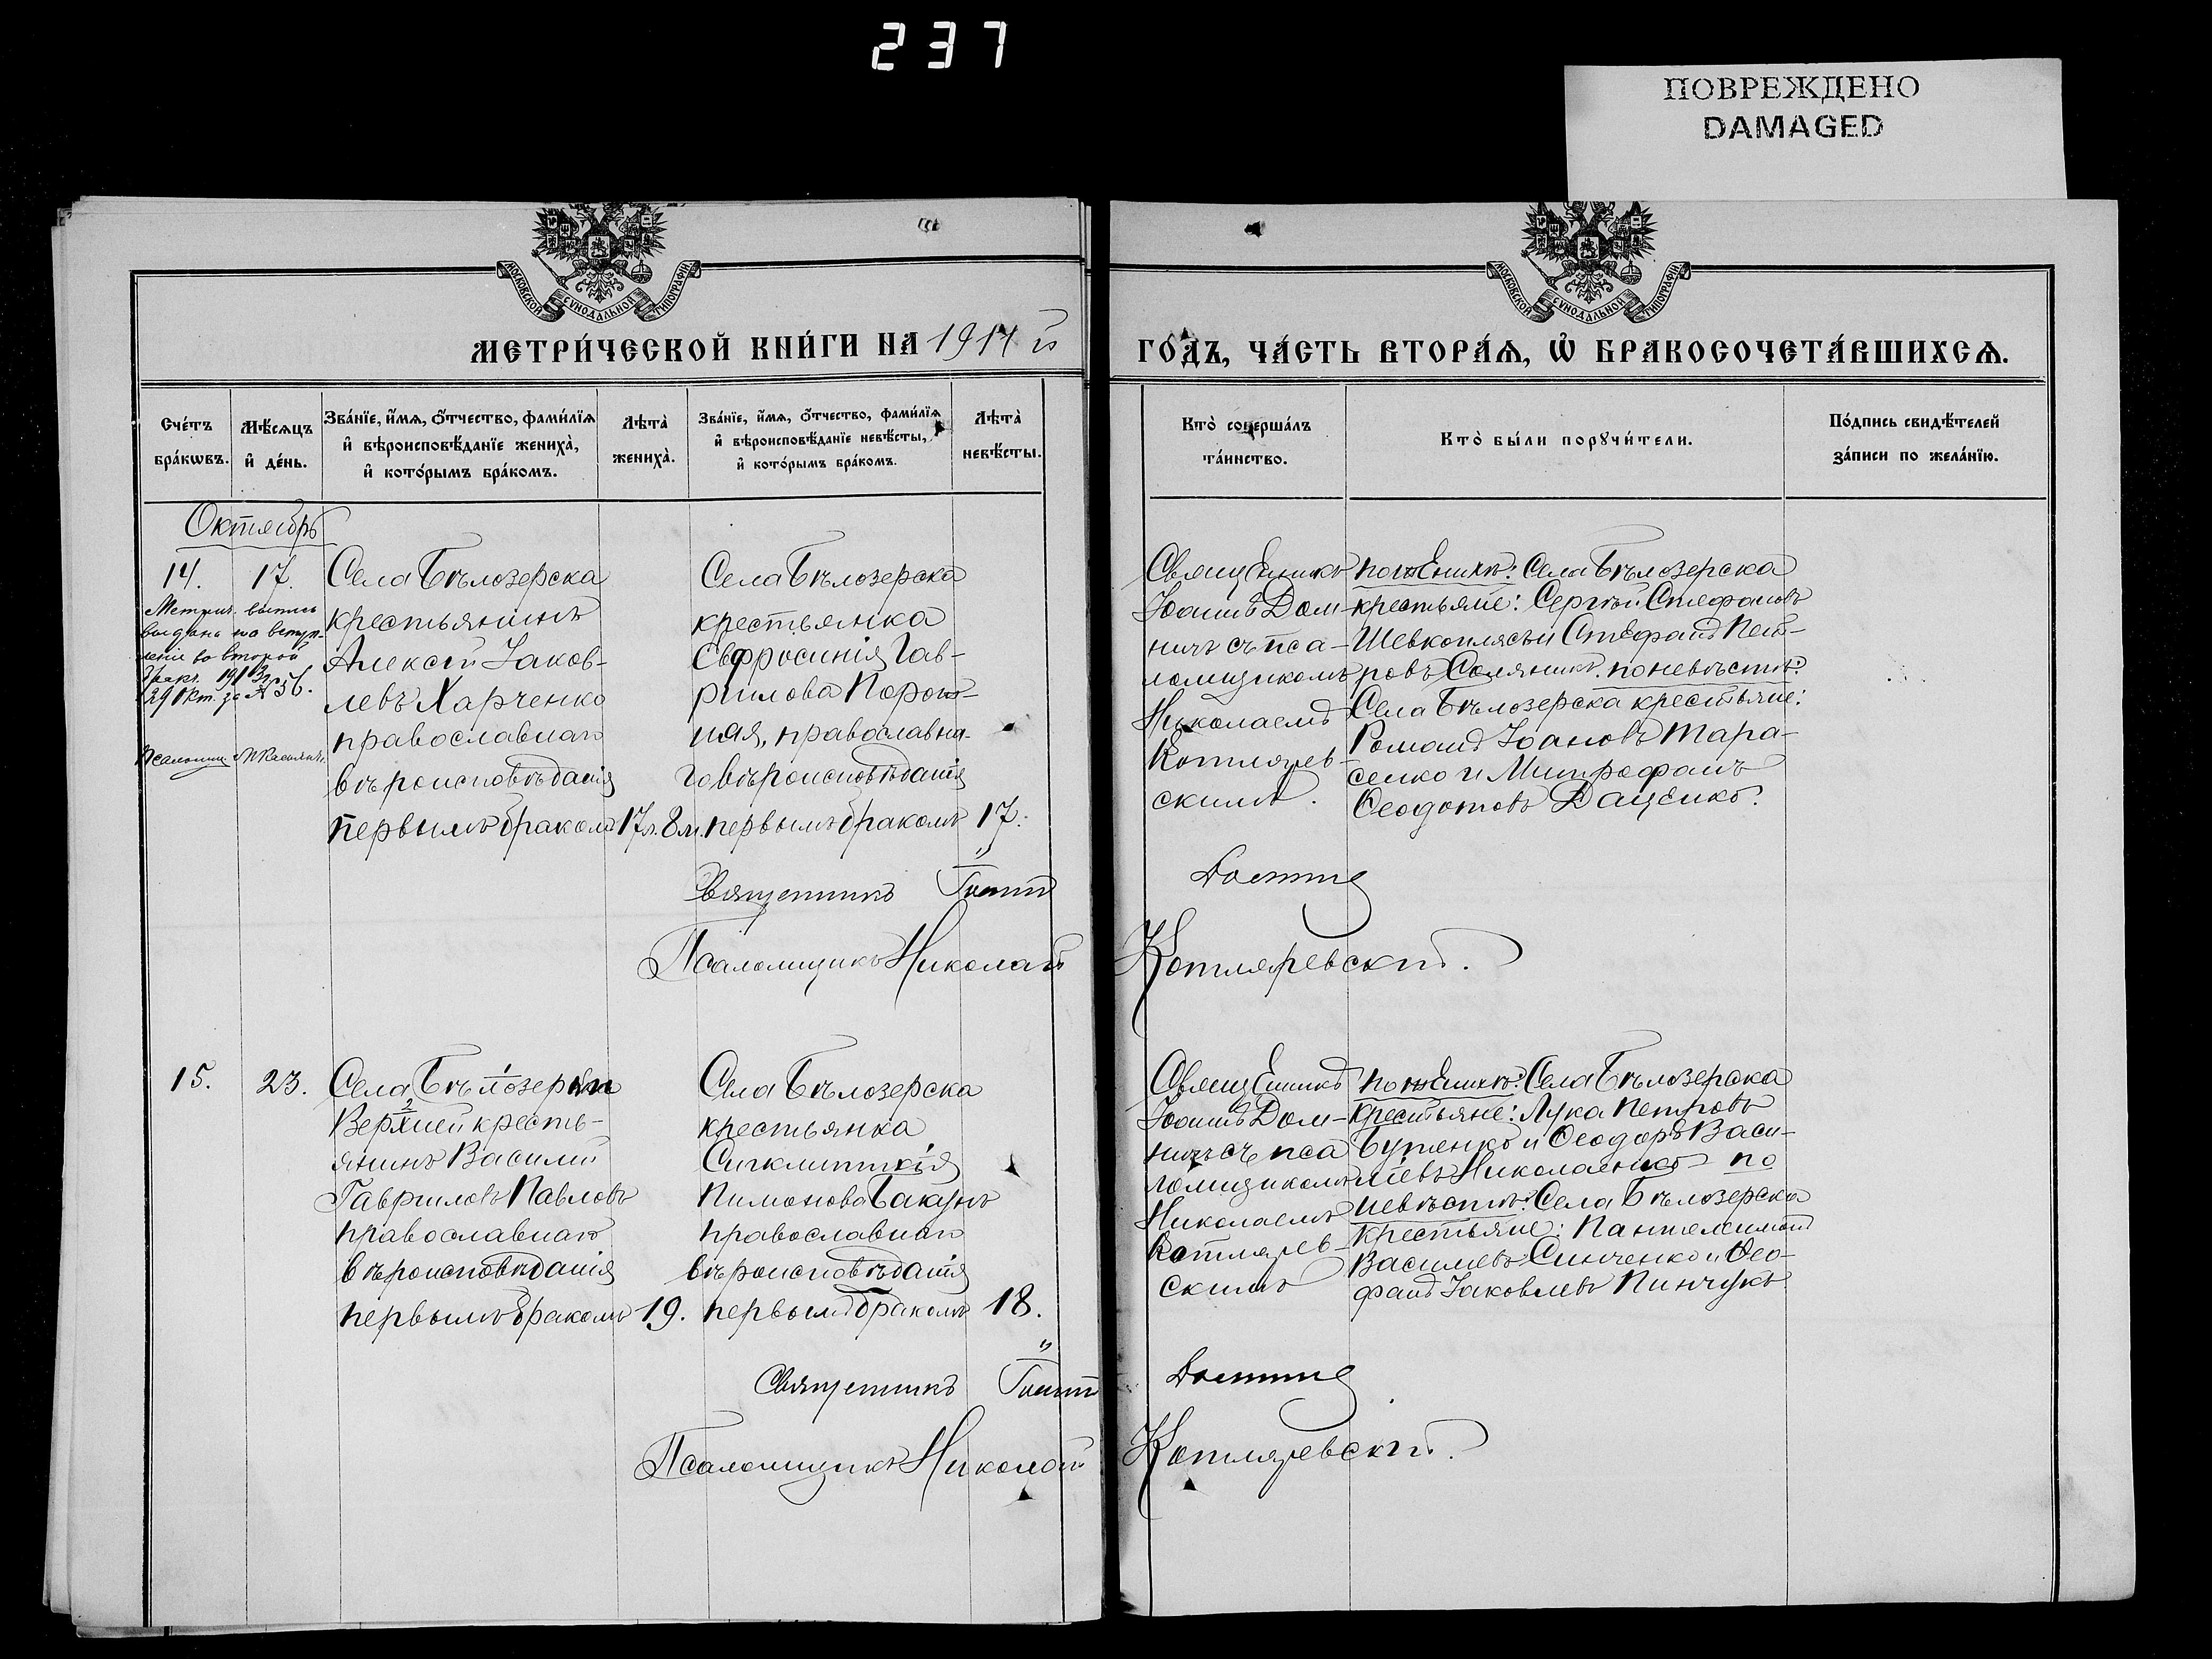 237
ПОВРЕЖДЕНО
DAMAGED
МОСКОВСКОЙ СѴНОДАЛЬНОЙ ТИПОГРАФІИ
МОСКОВСКОЙ СѴНОДАЛЬНОЙ ТИПОГРАФІИ
МЕТРИ́ЧЕСКОЙ КНИ́ГИ НА 1914 й
ГО́ДЪ, ЧА́СТЬ ВТОРА́Ѧ, Ѡ҆ БРАКОСОЧЕТА́ВШИХСѦ.
Сче́тъ бра́кѡвъ.
Мѣ́сѧцъ и҆ де́нь.
Зва́нїе, и҆́мѧ, ѻ҆́тчество, фами́лїѧ
и҆ вѣроисповѣ́данїе жениха̀,
и҆ кото́рымъ бра́комъ.
Лѣта̀ жениха̀.
Зва́нїе, и҆́мѧ, ѻ҆́тчество, фами́лїѧ
и҆ вѣроисповѣ́данїе невѣ́сты,
и҆ кото́рымъ бра́комъ.
Лѣта̀ невѣ́сты.
Кто̀ соверша́лъ та́инство.
Кто̀ бы́ли порꙋчи́тели.
По́дпись свидѣ́телей за́писи по жела́нїю.
Октябрь
14.
17.
Метрич. выпись
выдана на вступ-
леніе во второй
бракъ
29 Окт. за № 56.
Псаломщ.
Села Бѣлозерска
крестьянинъ
Алексѣй Іаков-
левъ Харченко
православнаго
вѣроисповѣданія
первымъ бракомъ
17 л. 8 м.
Села Бѣлозерска
крестьянка
Евфросинія Гав-
риилова Порот-
ная, православна-
го вѣроисповѣданія
первымъ бракомъ
17.
Священникъ Іоаннъ
Псаломщикъ Николай
Священникъ
Іоаннъ Дом-
ничъ съ пса-
ломщикомъ
Николаемъ
Котлярев-
скимъ.
по женихѣ: Села Бѣлозерска
крестьяне: Сергѣй Стефановъ
Шевкоплясъ и Стефанъ Пет-
ровъ Соляникъ. по невѣстѣ:
Села Бѣлозерска крестьяне:
Романъ Іоановъ Тара-
сенко и Митрофанъ
Ѳеодотовъ Даценко.
Домничъ
Котляревскій.
15.
23.
Села Бѣлозерки
Верхней кресть-
янинъ Василій
Гавриловъ Павловъ
православнаго
вѣроисповѣданія
первымъ бракомъ
19.
Села Бѣлозерска
крестьянка
Сигклитикія
Пимонова Бакунъ
православнаго
вѣроисповѣданія
первымъ бракомъ
18.
Священникъ Іоаннъ
Псаломщикъ Николай
Священникъ
Іоаннъ Дом-
ничъ съ пса
ломщикомъ
Николаемъ
Котлярев-
скимъ
по женихѣ: Села Бѣлозерска
крестьяне: Лука Петровъ
Бутенко и Ѳеодоръ Васи-
ліевъ Николаенко по
невѣстѣ: Села Бѣлозерска
крестьяне: Пантелеимонъ
Василіевъ Синченко и Ѳео-
фанъ Іаковлевъ Пинчукъ
Домничъ
Котляревскій.